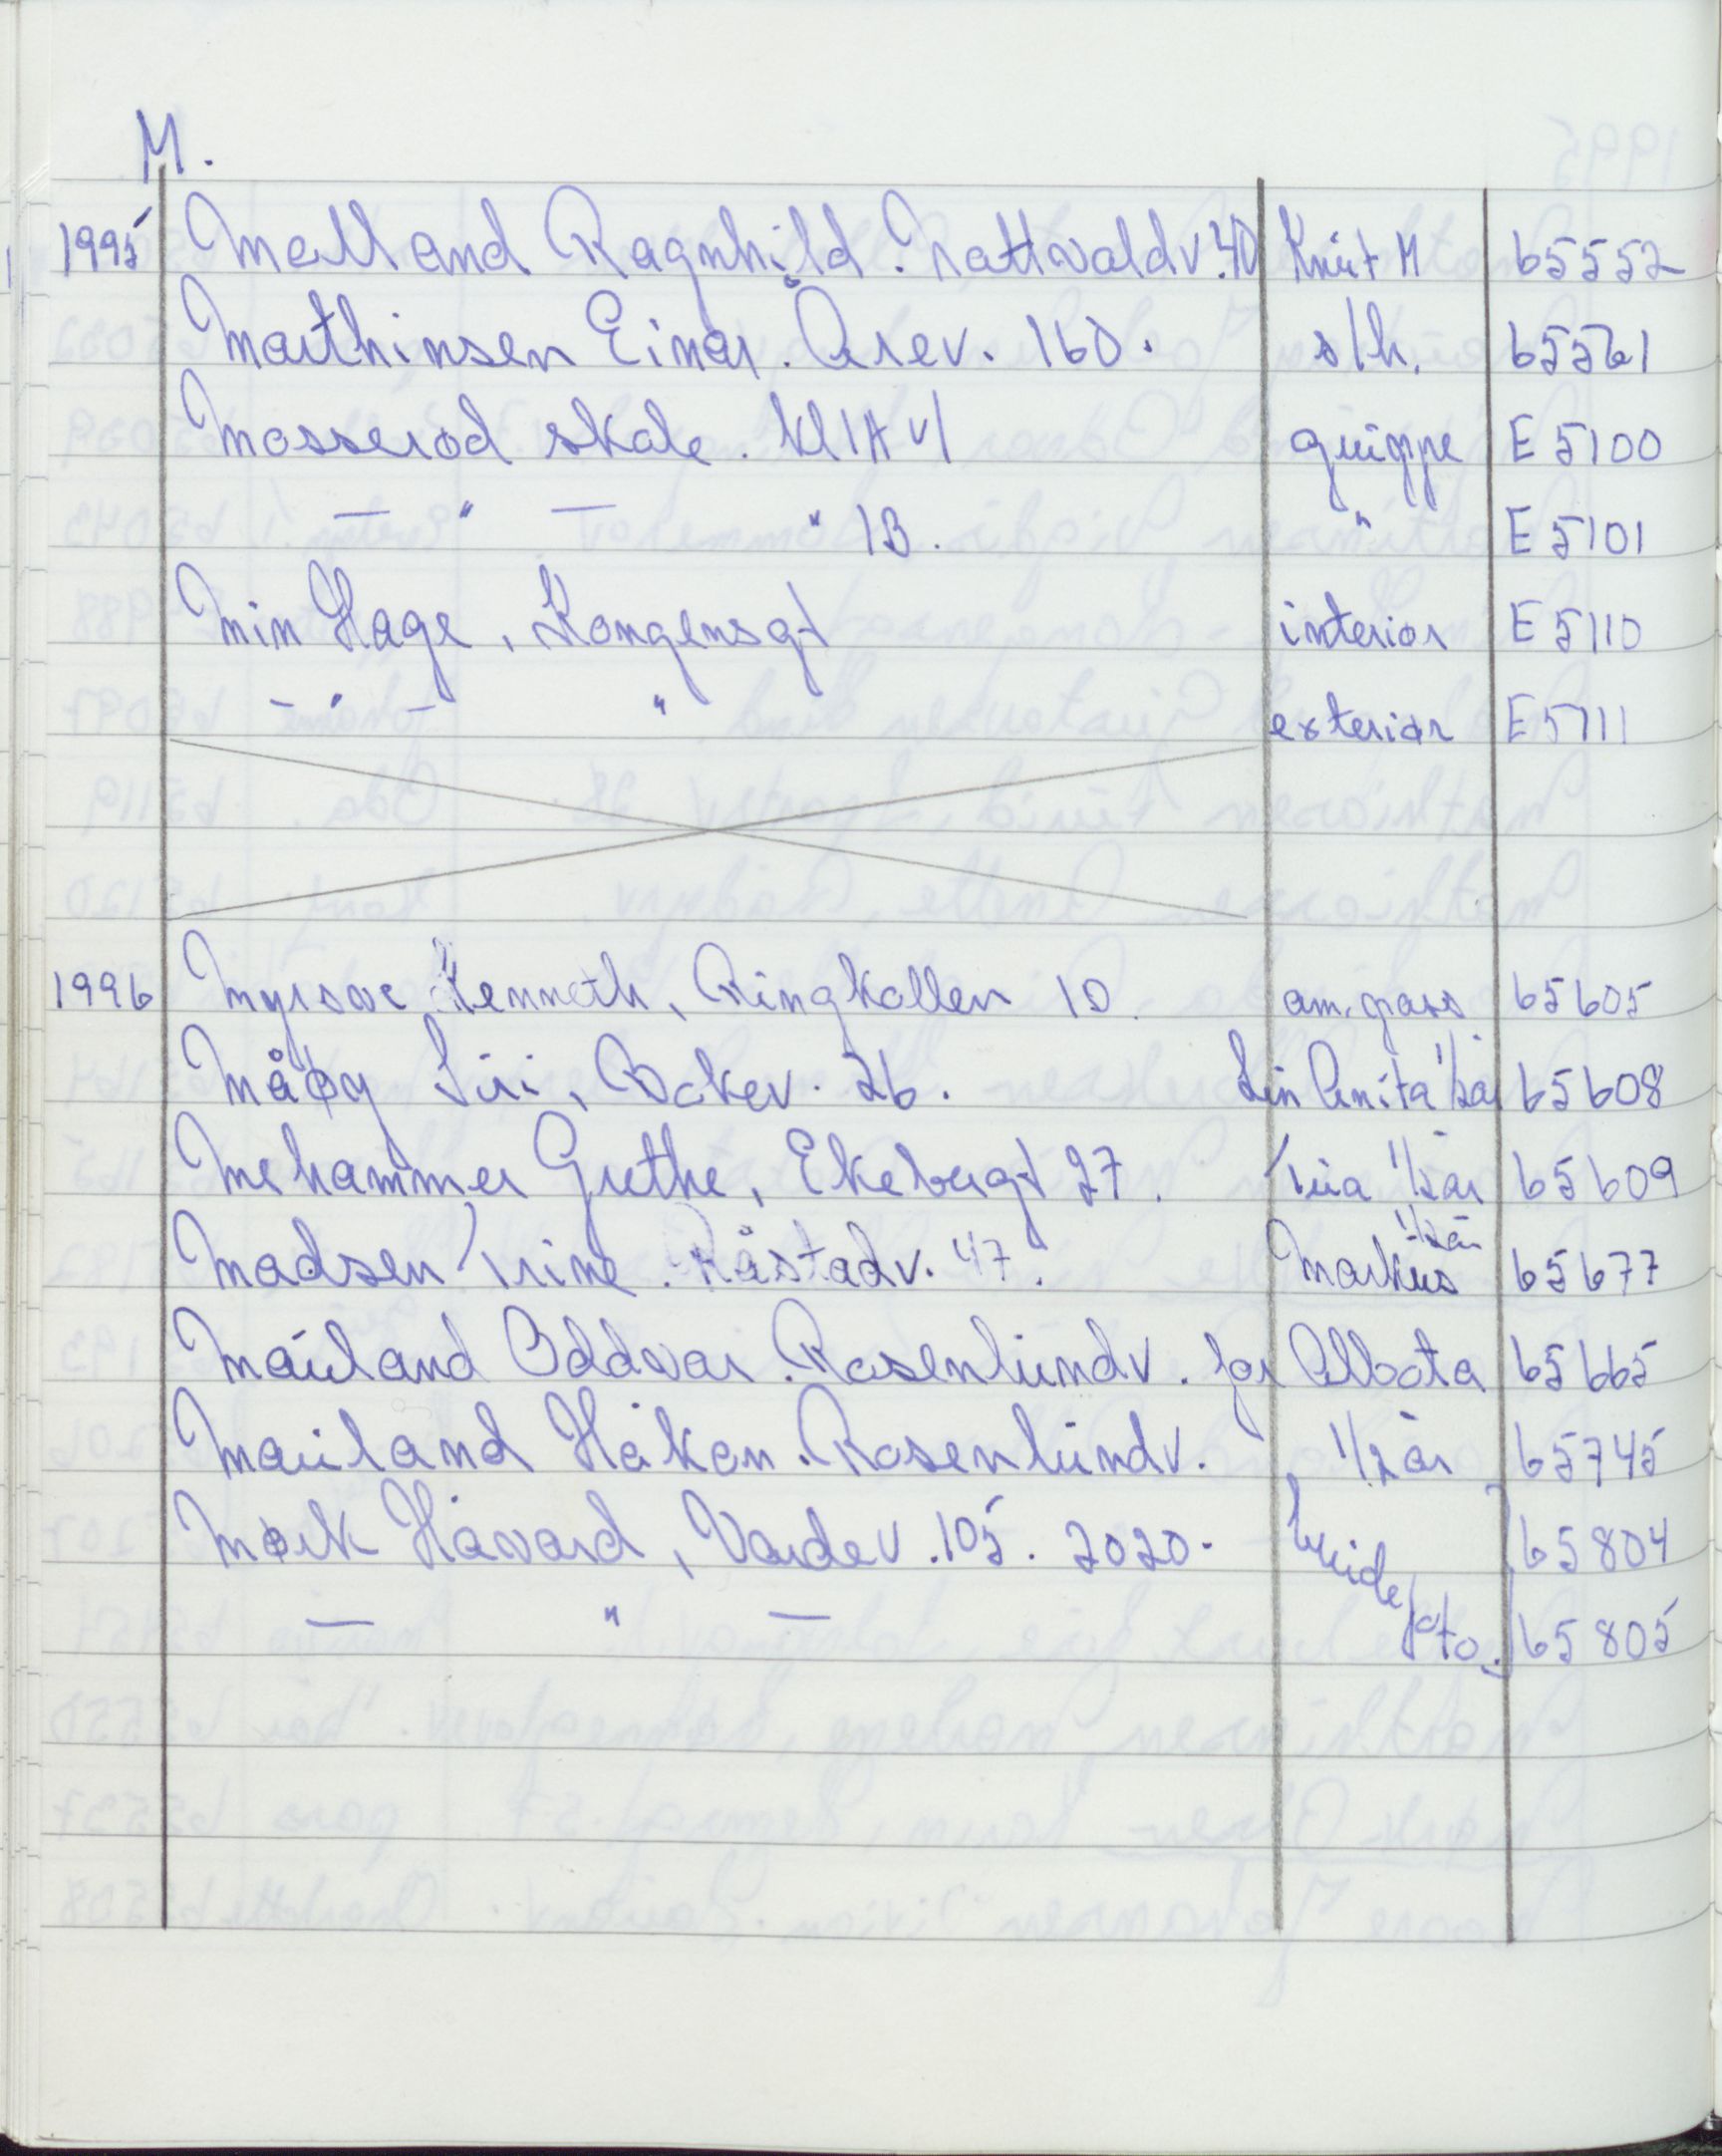 M.
1995 Malland Ragnhild. Nattvaldv. 40 Knut M 65552
Marthinsen Einar. Årev. 160. s/h. 65561
Mosserød skole. kl 1A v/ gruppe E 5100
— " — " 1B. " E 5101
Min Hage, Kongensgt interiør E 5110
— " — " exteriør E 5111
1996 Myrsve Kenneth, Ringkollen 10. am. pass 65605
Måøy Siri, Bakev. 26. Lin Anita 1/2 år 65608
Mehammer Grethe, Ekebergt 27. Tiia 1/2 år 65609
Madsen Trine. Råstadv. 47. Markus 1/2 år 65677
Mauland Oddvar. Rosenlundv. for Albata 65665
Mauland Håkon. Rosenlundv. 1/2 år 65745
Mørk Håvard, Vardev. 105. 2020. brude foto. 65804
— " — 65805